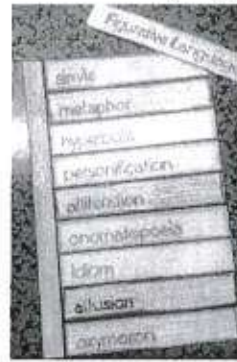 Figurative Language
simile
metaphor
hyperbole
personification
alliteration
onomatopoeia
idiom
allusion
oxymoron